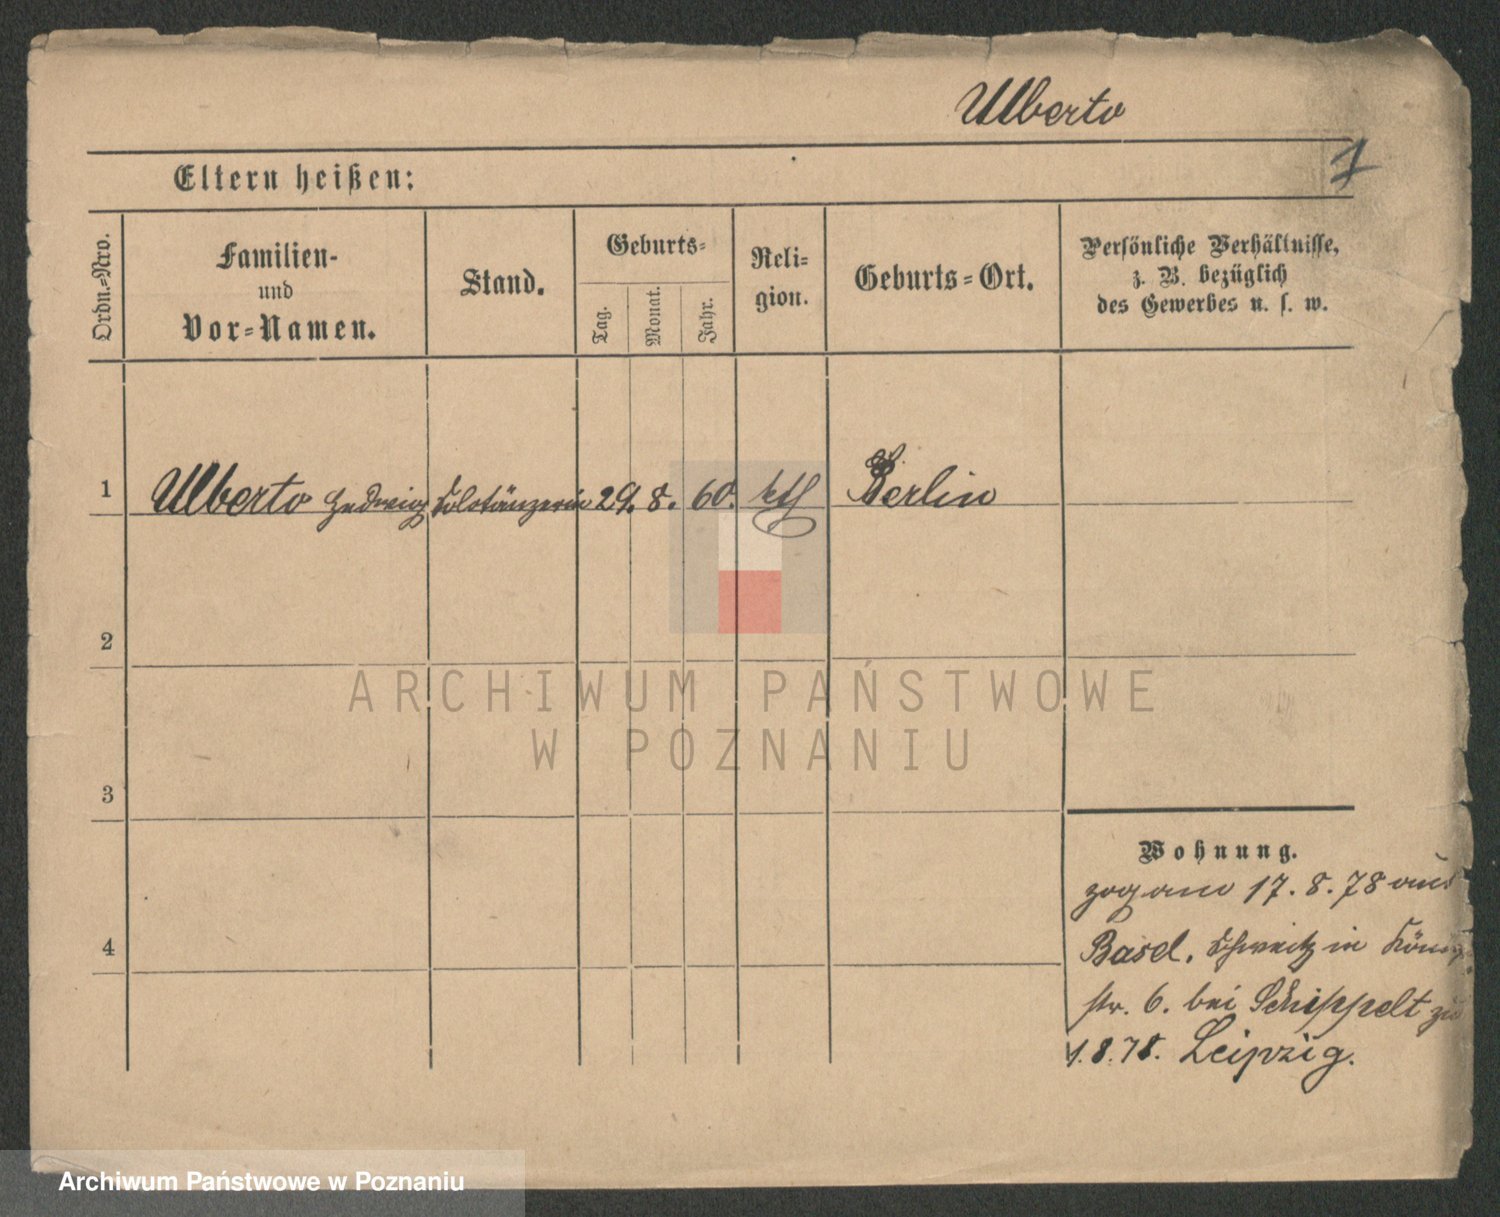 Ulberto
1
Eltern heißen:
Ordn.-Nro.
Familien-
und
Vor-Namen.
Stand.
Geburts-
Tag.
Monat.
Jahr.
Reli-
gion.
Geburts-Ort.
Persönliche Verhältnisse,
z. B. bezüglich
des Gewerbes u. s. w.
1 Ulberto Hedwig Solotänzerin 29. 8. 60. kth Berlin
2
ARCHIWUM PAŃSTWOWE
W POZNANIU
3
Wohnung.
zog am 17. 8. 78 aus
Basel, Schweitz in
4
str. 6. bei Schippelt
1.8.78. Leipzig.
Archiwum Państwowe w Poznaniu